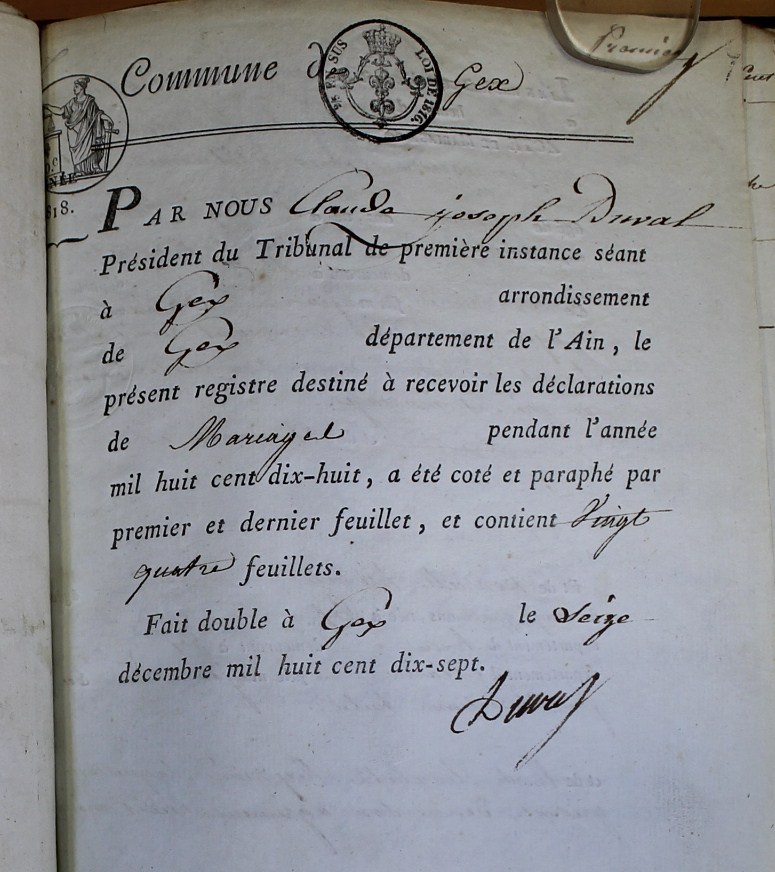 Premier
Commune de Gex
EN SUS LOI DE 1816.
1818.
PAR NOUS Claude joseph Duval
Président du Tribunal de première instance séant
à Gex arrondissement
de Gex département de l'Ain, le
présent registre destiné à recevoir les déclarations
de Mariages pendant l'année
mil huit cent dix-huit, a été coté et paraphé par
premier et dernier feuillet, et contient Vingt
quatre feuillets.
Fait double à Gex le Seize
décembre mil huit cent dix-sept.
Duval